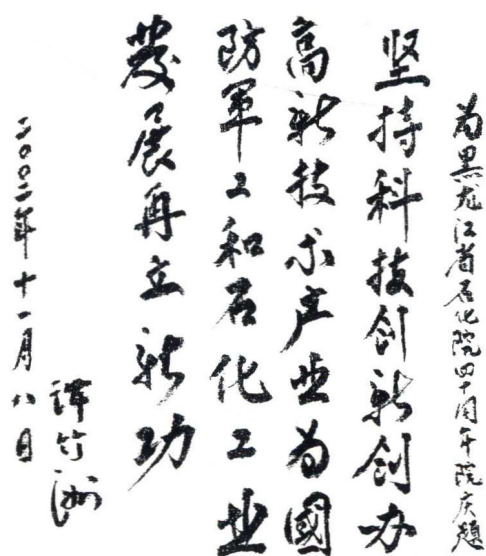 为黑龙江省石化院四十周年院庆题
坚持科技创新创办
高新技术产业为國
防軍工和石化工业
發展再立新功
谭竹洲
二〇〇二年十一月八日